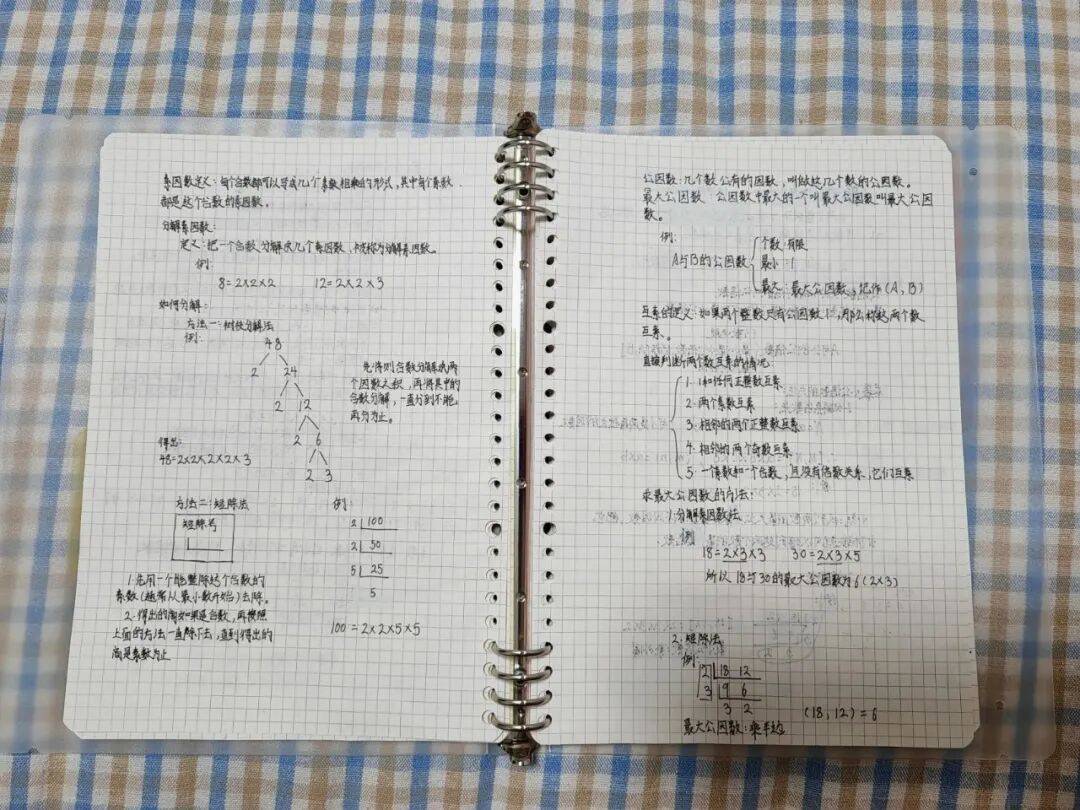 素因数定义:每个合数都可以写成几个素数相乘的形式,其中每个素数
都是这个合数的素因数。
分解素因数:
定义:把一个合数分解成几个素因数,被称为分解素因数。
例:
8=2×2×2 12=2×2×3
如何分解:
方法一:树枝分解法
例:
48
2 24
2 12
2 6
2 3
先将则合数分解成两
个因数之积,再将其中的
合数分解,一直分到不能
再分为止。
得出:
48=2×2×2×2×3
方法二:短除法
短除号
例:
2 100
2 50
5 25
5
1.先用一个能整除这个合数的
素数(通常从最小数开始)去除。
2.得出的商如果是合数,再按照
上面的方法一直除下去,直到得出的
商是素数为止
100=2×2×5×5
公因数:几个数公有的因数,叫做这几个数的公因数。
最大公因数:公因数中最大的一个叫最大公因数叫最大公因
数。
例:
A与B的公因数
个数:有限
最小:1
最大:最大公因数,记作(A,B)
互素的定义:如果两个整数只有公因数1,那么称这两个数
互素。
直接判断两个数互素的情况:
1.1和任何正整数互素
2.两个素数互素
3.相邻的两个正整数互素
4.相邻的两个奇数互素
5.一个素数和一个合数,且没有倍数关系,它们互素
求最大公因数的方法:
1.分解素因数法
例:
18=2×3×3 30=2×3×5
所以18与30的最大公因数为6(2×3)
2.短除法
例:
2 18 12
3 9 6
3 2
(18,12)=6
最大公因数:乘半边